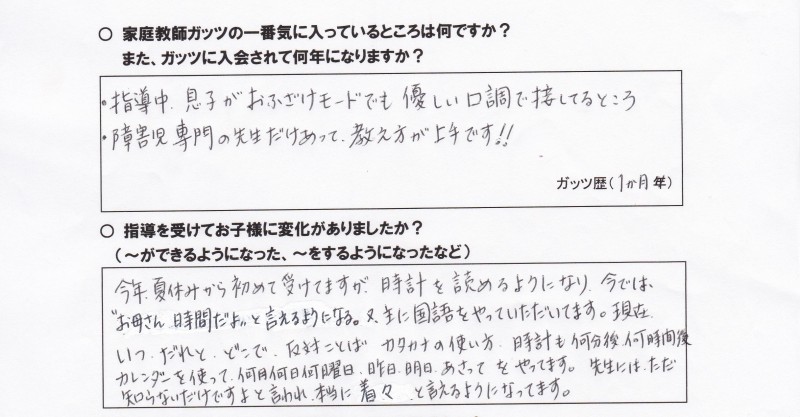 ○ 家庭教師ガッツの一番気に入っているところは何ですか？
また、ガッツに入会されて何年になりますか？
・指導中、息子がおふざけモードでも優しい口調で接してるところ
・障害児専門の先生だけあって、教え方が上手です!!
ガッツ歴（1か月年）
○ 指導を受けてお子様に変化がありましたか？
（～ができるようになった、～をするようになったなど）
今年、夏休みから初めて受けてますが、時計を読めるようになり、今では、
"お母さん、時間だよ"と言えるようになる。又、主に国語をやっていただいてます。現在、
いつ、だれと、どこで、反対ことば、カタカナの使い方、時計も何分後、何時間後
カレンダーを使って、何月何日何曜日、昨日、明日、あさってをやってます。先生には、ただ
知らないだけですよと言われ、本当に着々と言えるようになってます。